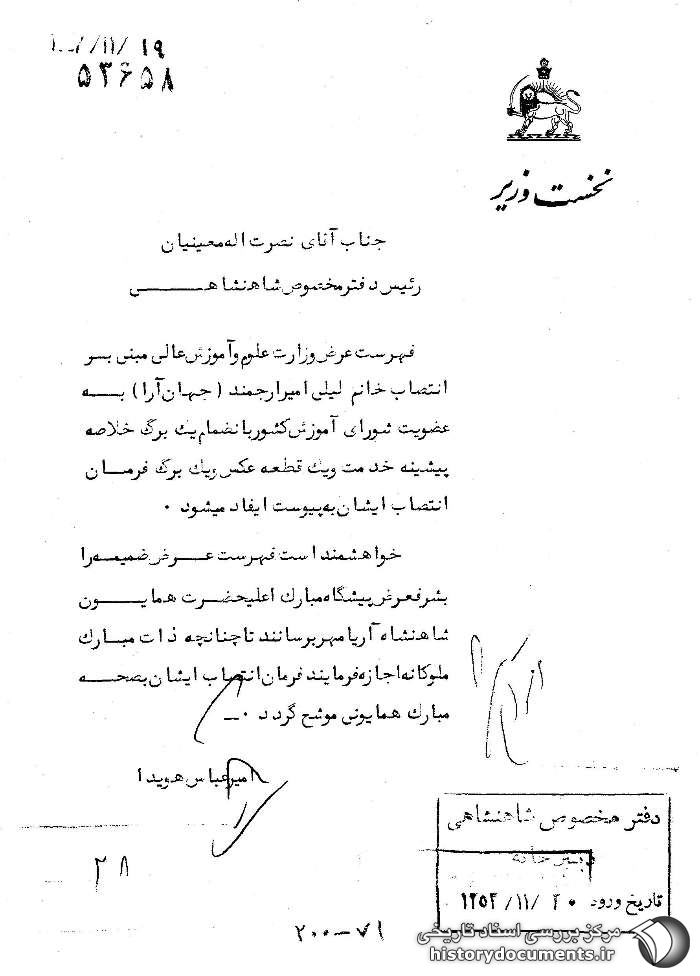 ۱۹ /۱۱/
۵۳۶۵۸
نخست وزیر
جناب آقای نصرت اله معینیان
رئیس دفتر مخصوص شاهنشاهـــــی
فهرست عرض وزارت علوم و آموزش عالی مبنی بـر
انتصاب خانم لیلی امیرارجمند (جهان‌آرا) بـــه
عضویت شورای آموزش کشور بانضمام یک برگ خلاصه
پیشینه خدمت ویک قطعه عکس ویک برگ فرمـــان
انتصاب ایشان به پیوست ایفاد میشود ۰
خواهشمند است فهرست عـــرض ضمیمـــه را
بشرفعرض پیشگاه مبارک اعلیحضرت همایـــون
شاهنشاه آریامهر برسانند تا چنانچه ذات مبـارک
ملوکانه اجازه فرمایند فرمان انتصاب ایشان بصحـــه
مبارک همایونی موشح گردد ۰ــ
امیرعباس هویدا
دفتر مخصوص شاهنشاهی
دبیرخانه
تاریخ ورود ۲۰ /۱۱/ ۱۳۵۲
۲۸
۲۰۰-۷۱
مرکز بررسی اسناد تاریخی
historydocuments.ir